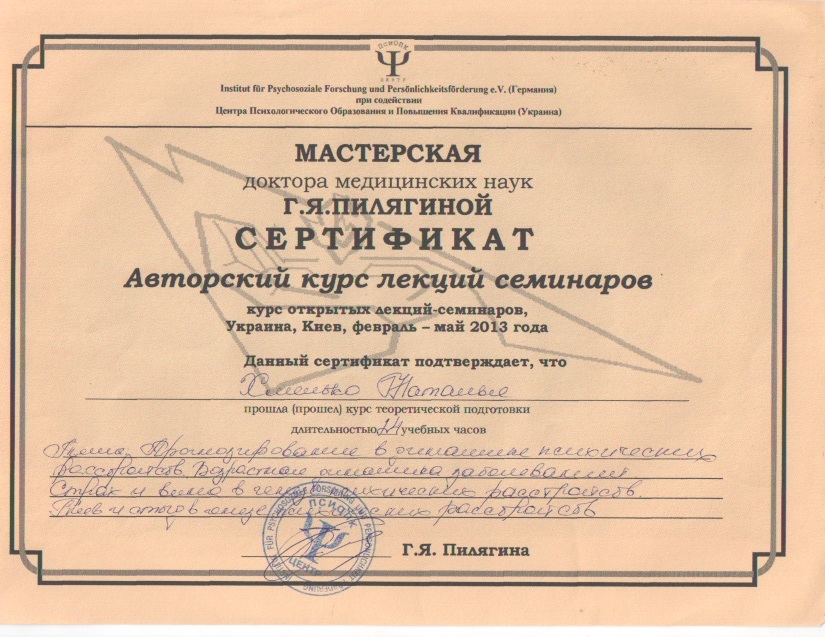 ПСИОПК
ЦЕНТР
Institut für Psychosoziale Forschung und Persönlichkeitsförderung e.V. (Германия)
при содействии
Центра Психологического Образования и Повышения Квалификации (Украина)
МАСТЕРСКАЯ
доктора медицинских наук
Г.Я.ПИЛЯГИНОЙ
СЕРТИФИКАТ
Авторский курс лекций семинаров
курс открытых лекций-семинаров,
Украина, Киев, февраль – май 2013 года
Данный сертификат подтверждает, что
Наталье
прошла (прошел) курс теоретической подготовки
длительностью 24 учебных часов
Прогнозирование в динамике психических
расстройств. Возрастная динамика заболевания
Страх и вина в психических расстройств.
Гнев и расстройств
ПСИОПК
ЦЕНТР
Г.Я. Пилягина